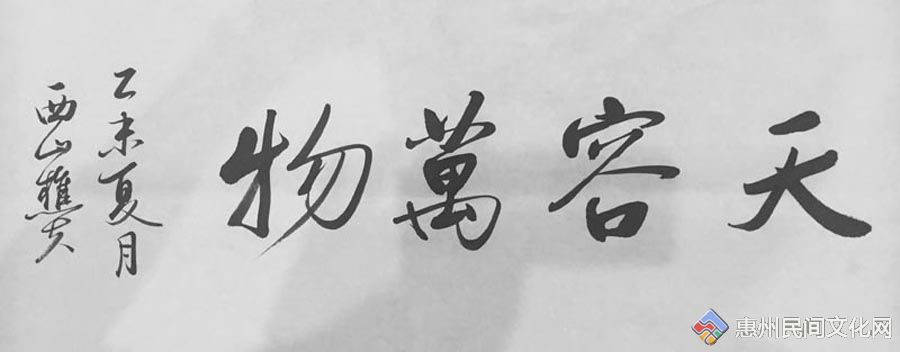 天容萬物
乙未夏月
西山樵夫
惠州民间文化网